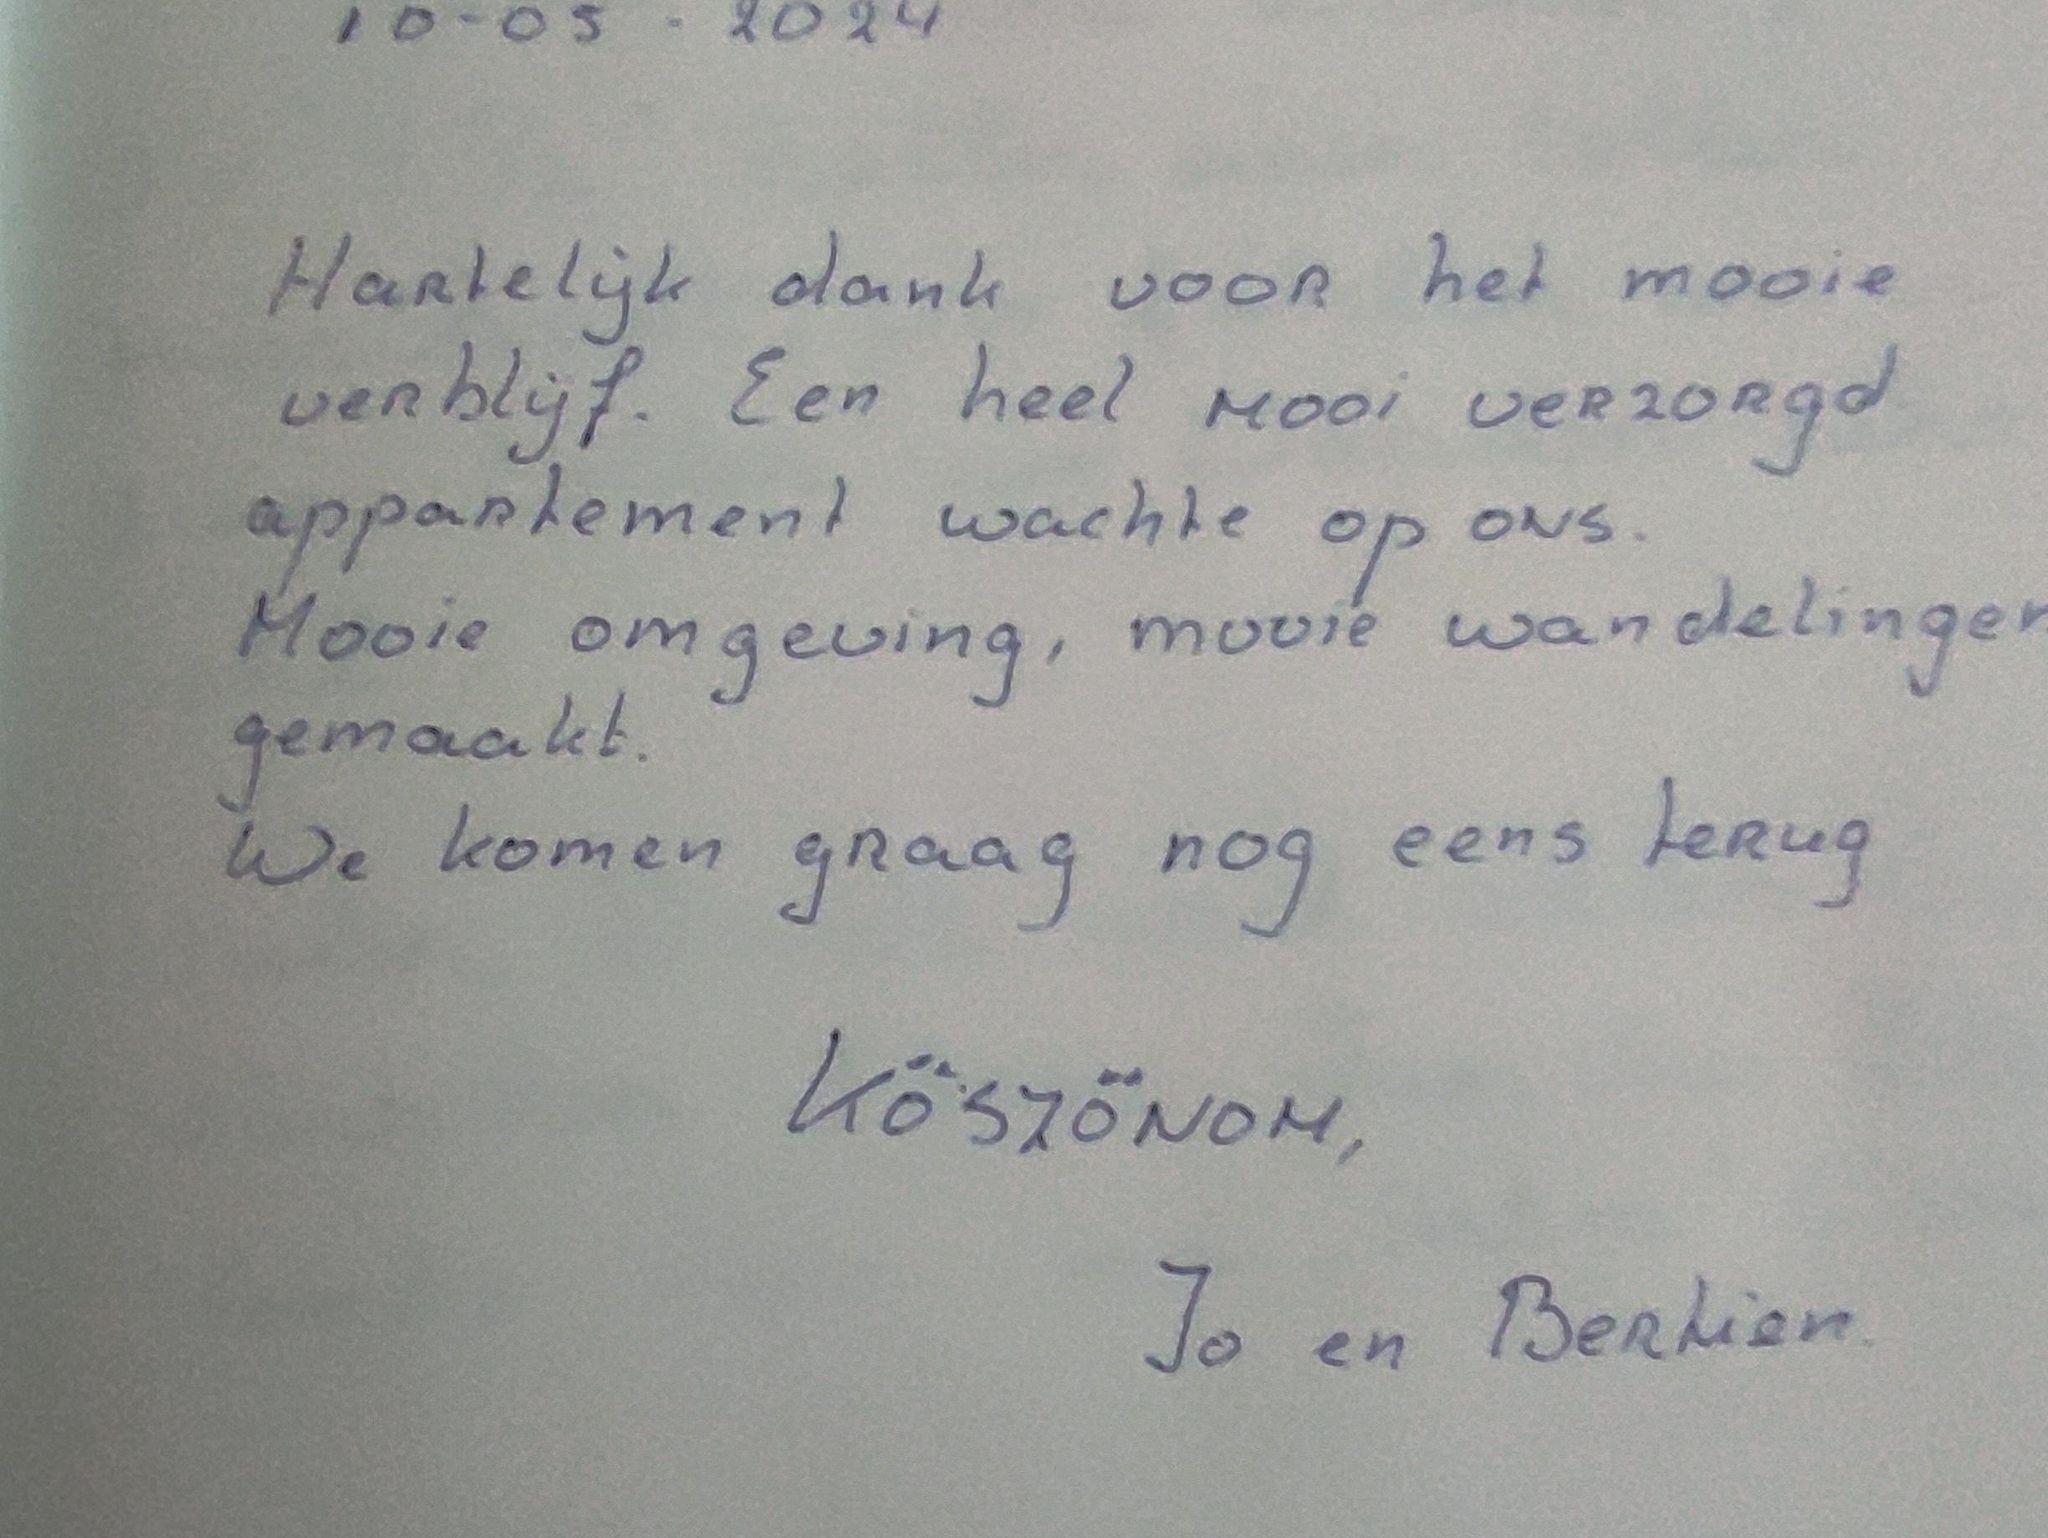 10-05-2024
Hartelijk dank voor het mooie
verblijf. Een heel mooi verzorgd
appartement wachte op ons.
Mooie omgeving, mooie wandelingen
gemaakt.
We komen graag nog eens terug
KÖSZÖNOM,
Jo en Bertien.